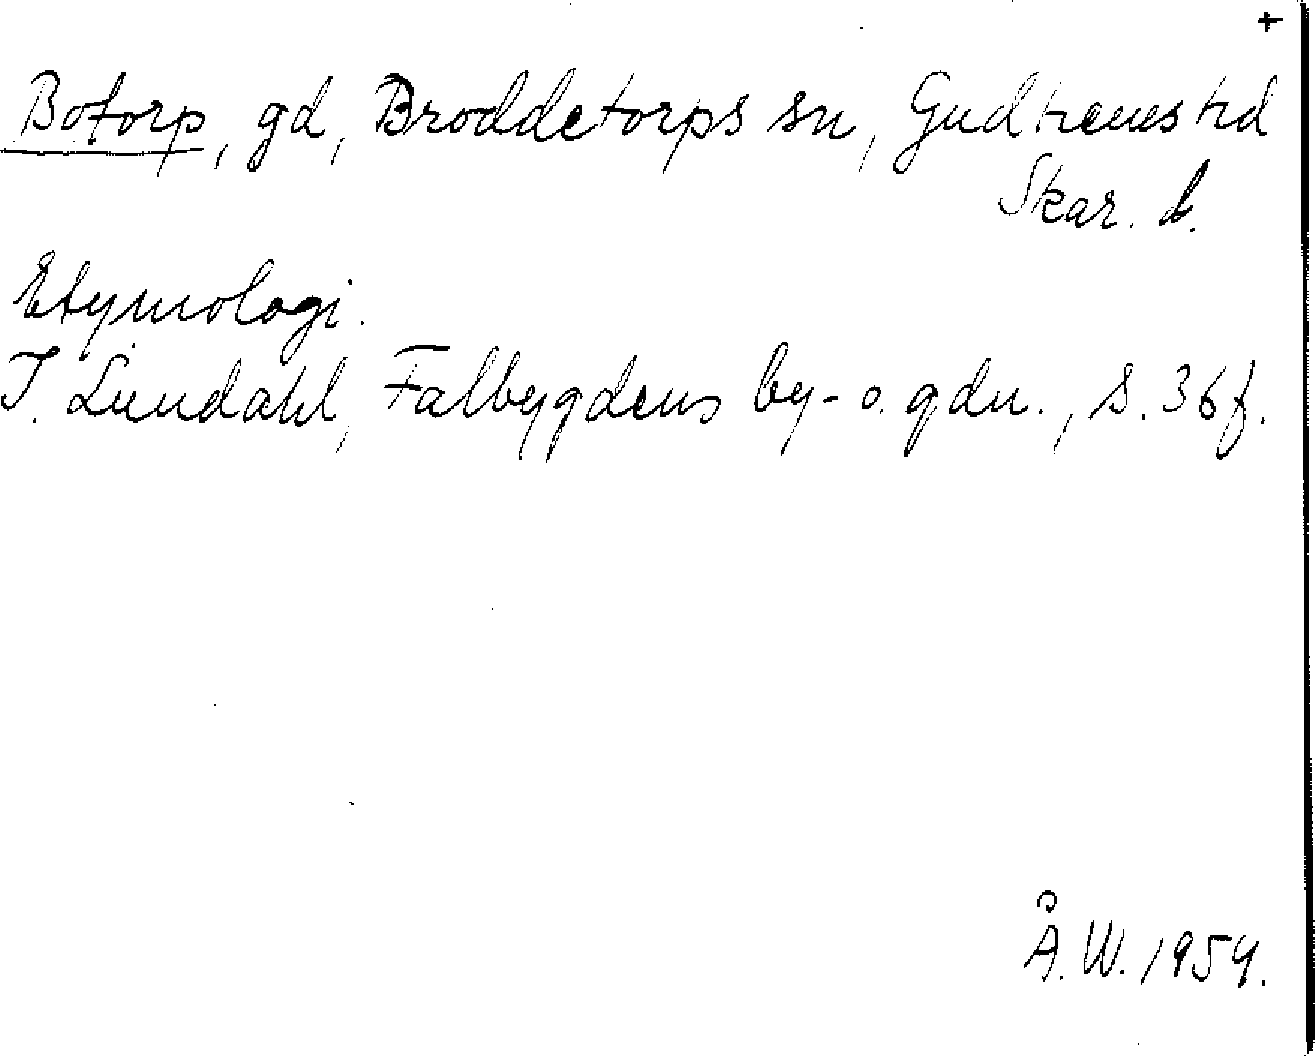 +
Botorp, gd, Broddetorps sn, Gudhems hd
Skar. l.
Etymologi.
I. Lundahl, Falbygdens by- o. gdn., s. 36f.
Å. W. 1954.